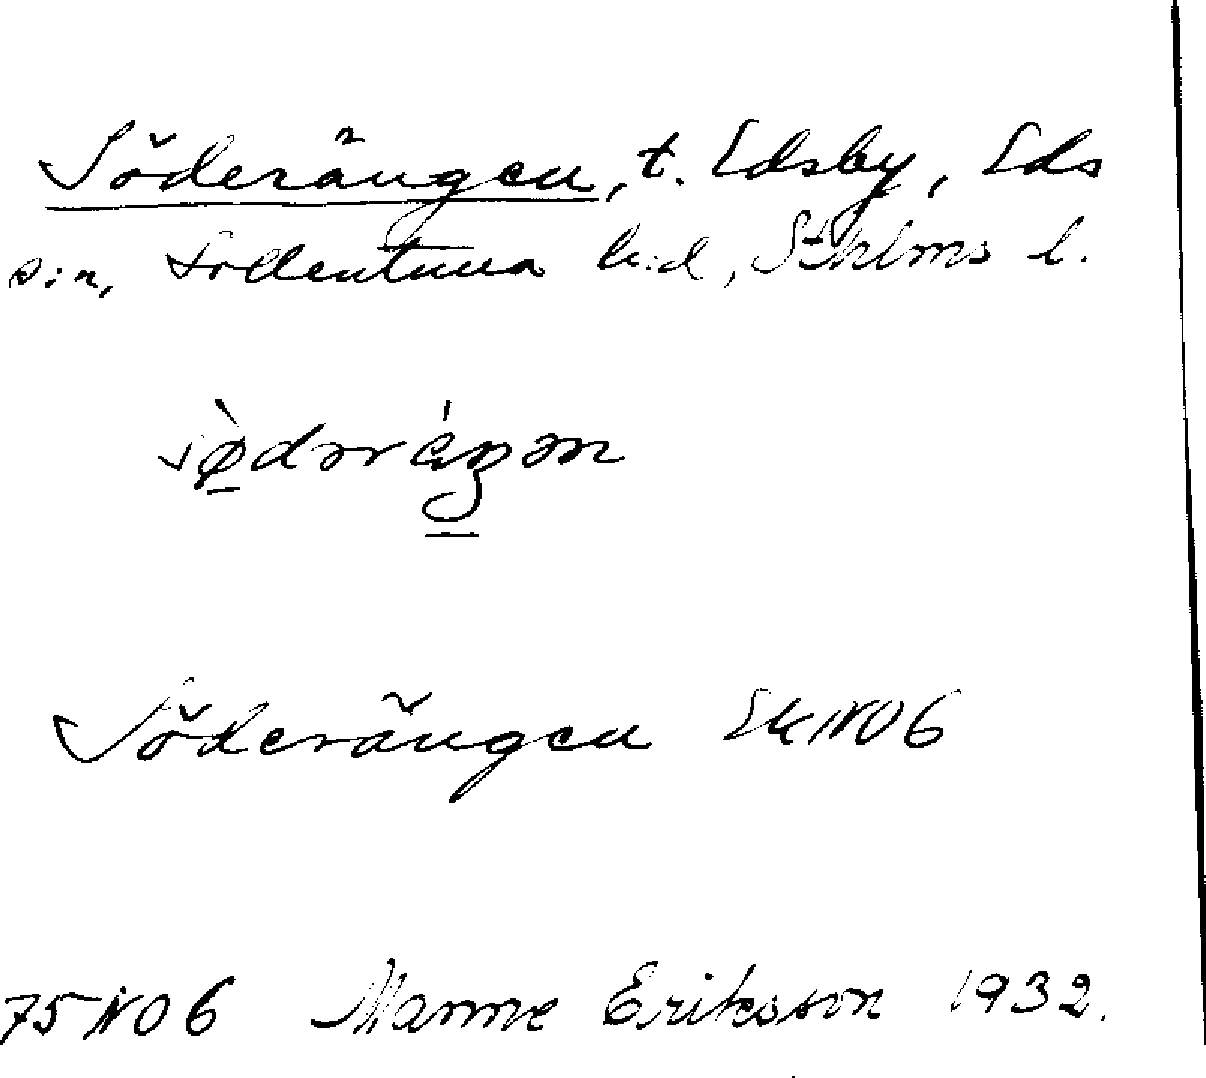 Söderängen, t. Edsby, Eds
sn, Sollentuna hd, Sthlms l.
sø̀dərǽŋən
Söderängen Ek NO6
75 NO 6 Manne Eriksson 1932.